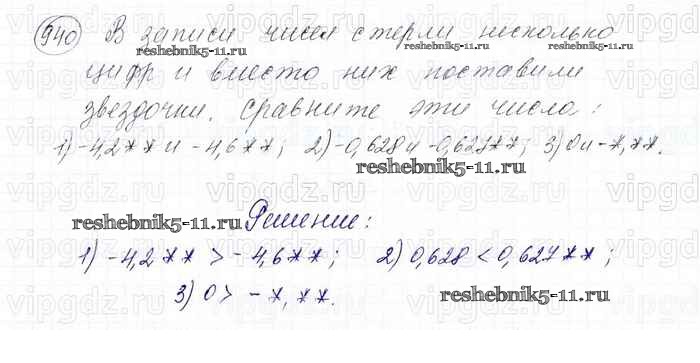 940 В записи чисел стерли несколько
цифр и вместо них поставили
звездочки. Сравните эти числа:
1) -4,2** и -4,6**; 2) -0,628 и -0,627**; 3) 0 и -*,**.
Решение:
1) -4,2** > -4,6**; 2) 0,628 < 0,627**;
3) 0 > -*,**.
reshebnik5-11.ru
reshebnik5-11.ru
reshebnik5-11.ru
reshebnik5-11.ru
reshebnik5-11.ru
vipgdz.ru